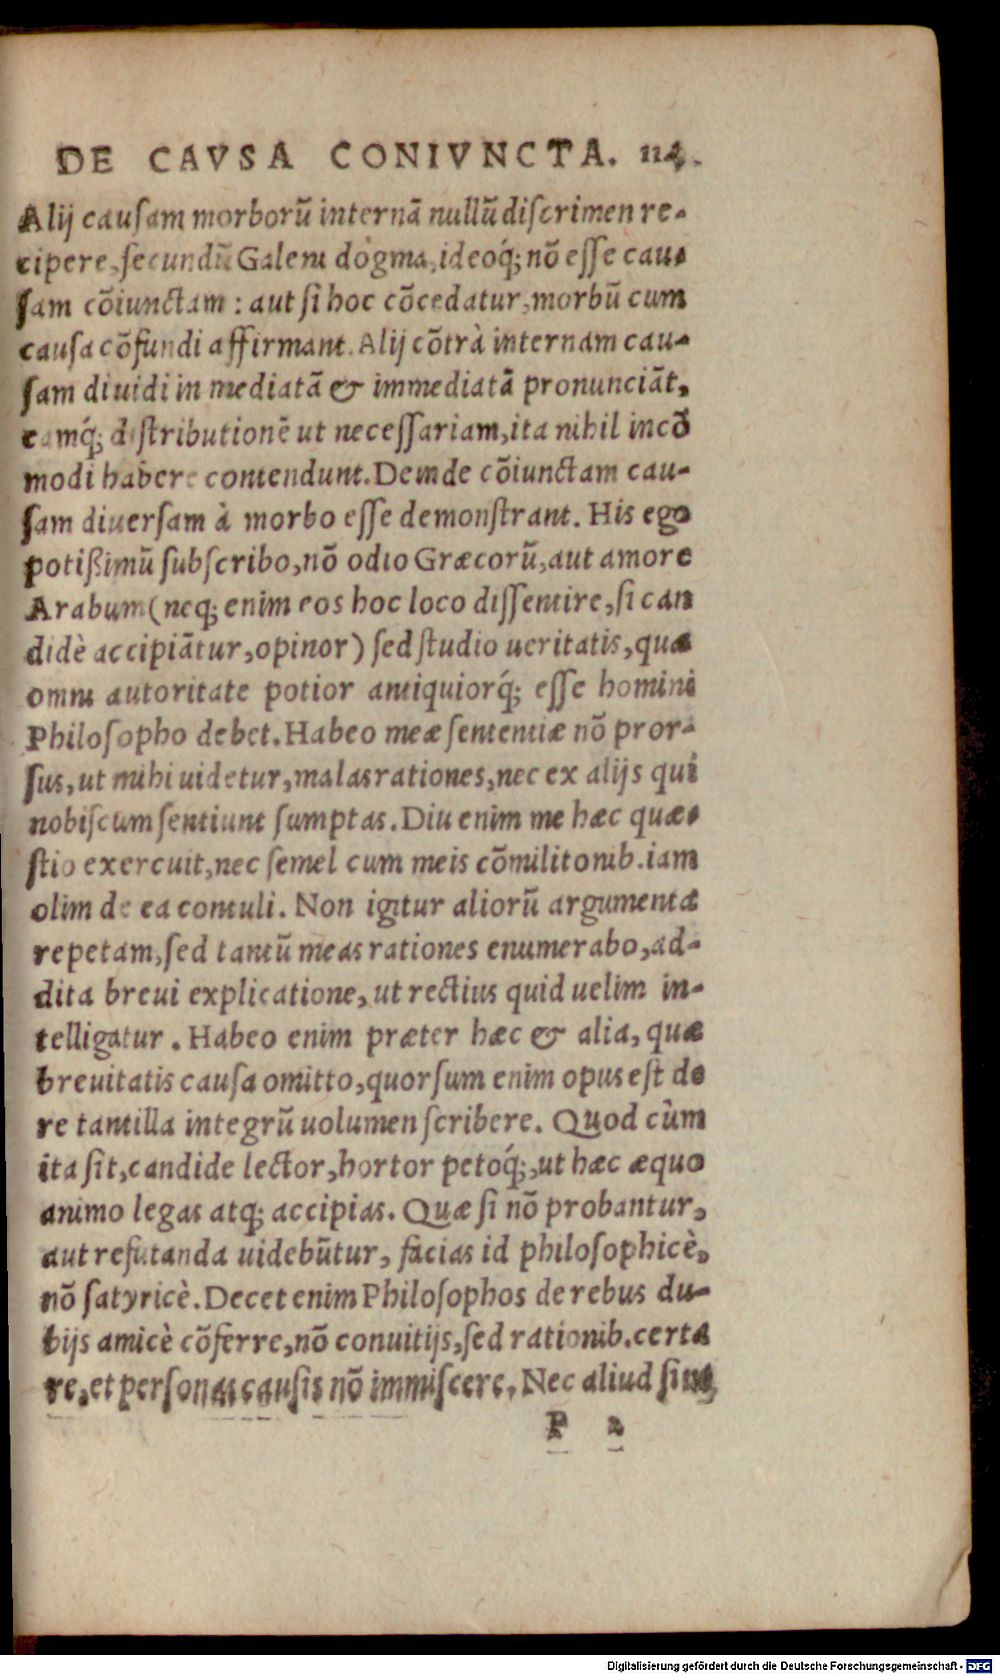 DE CAVSA CONIVNCTA. 114.
Alij causam morborũ internã nullũ discrimen re-
cipere, secundũ Galeni dogma, ideoq́; nõ esse cau-
sam cõiunctam: aut si hoc cõcedatur, morbũ cum
causa cõfundi affirmant. Alij cõtrà internam cau-
sam diuidi in mediatã & immediatã pronunciãt,
eamq́; distributionẽ ut necessariam, ita nihil incõ
modi habere contendunt. Deinde cõiunctam cau-
sam diuersam à morbo esse demonstrant. His ego
potißimũ subscribo, nõ odio Græcorũ, aut amore
Arabum (neq; enim eos hoc loco dissentire, si can
didè accipiãtur, opinor) sed studio ueritatis, quæ
omni autoritate potior antiquiorq́; esse homini
Philosopho debet. Habeo meæ sententiæ nõ pror-
sus, ut mihi uidetur, malas rationes, nec ex alijs qui
nobiscum sentiunt sumptas. Diu enim me hæc quæ-
stio exercuit, nec semel cum meis cõmilitonib. iam
olim de ea contuli. Non igitur aliorũ argumenta
repetam, sed tantũ meas rationes enumerabo, ad-
dita breui explicatione, ut rectius quid uelim in-
telligatur. Habeo enim præter hæc & alia, quæ
breuitatis causa omitto, quorsum enim opus est de
re tantilla integrũ uolumen scribere. Quod cùm
ita sit, candide lector, hortor petoq́;, ut hæc æquo
animo legas atq; accipias. Quæ si nõ probantur,
aut refutanda uidebũtur, facias id philosophicè,
nõ satyricè. Decet enim Philosophos de rebus du-
bijs amicè cõferre, nõ conuitijs, sed rationib. certa
re, et personas causis nõ immiscere. Nec aliud sine
P 2
Digitalisierung gefördert durch die Deutsche Forschungsgemeinschaft - DFG